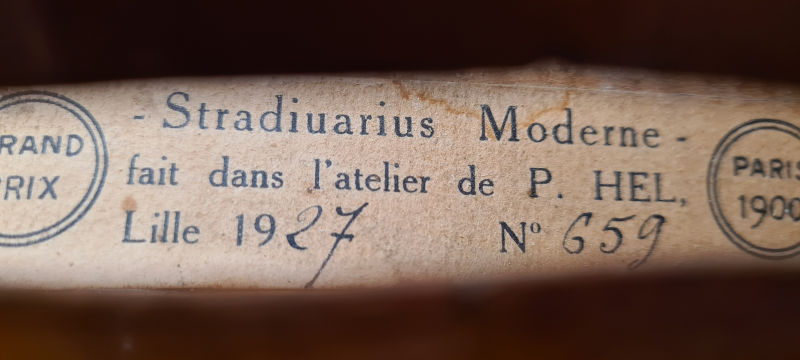 - Stradiuarius Moderne -
fait dans l'atelier de P. HEL,
Lille 1927 Nº 659
RAND
RIX
PARIS
1900